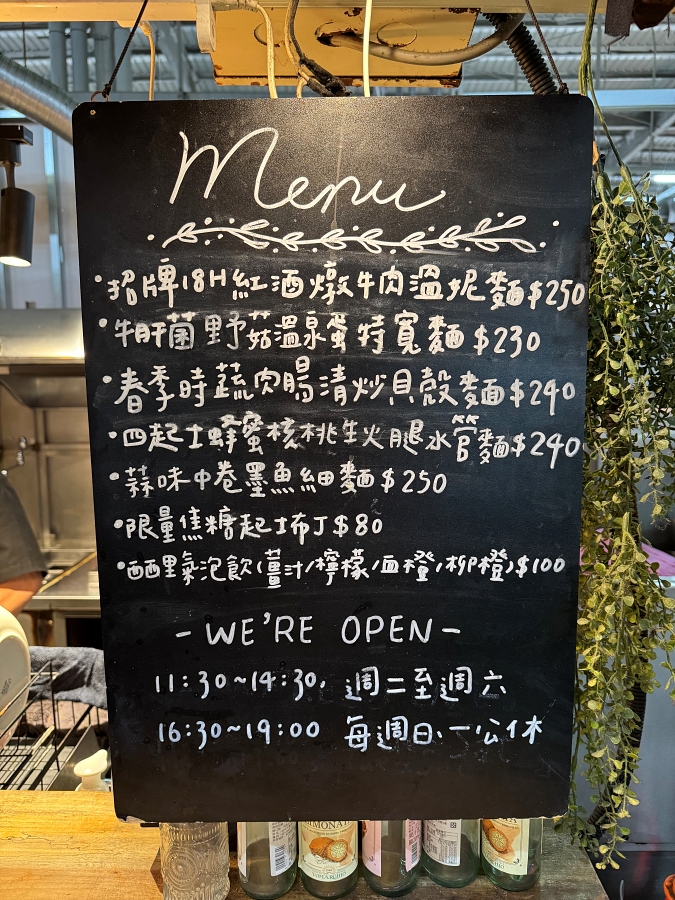 Menu
·招牌18H紅酒燉牛肉溫妮麵$250
·牛肝菌野菇溫泉蛋特寬麵 $230
·春季時蔬肉腸清炒貝殼麵$240
·四起士蜂蜜核桃生火腿水管麵$240
·蒜味中卷墨魚細麵 $250
·限量焦糖起士布丁$80
·西西里氣泡飲(薑汁/檸檬/血橙/柳橙)$100
- WE'RE OPEN -
11:30~14:30, 週二至週六
16:30~19:00 每週日、一公休